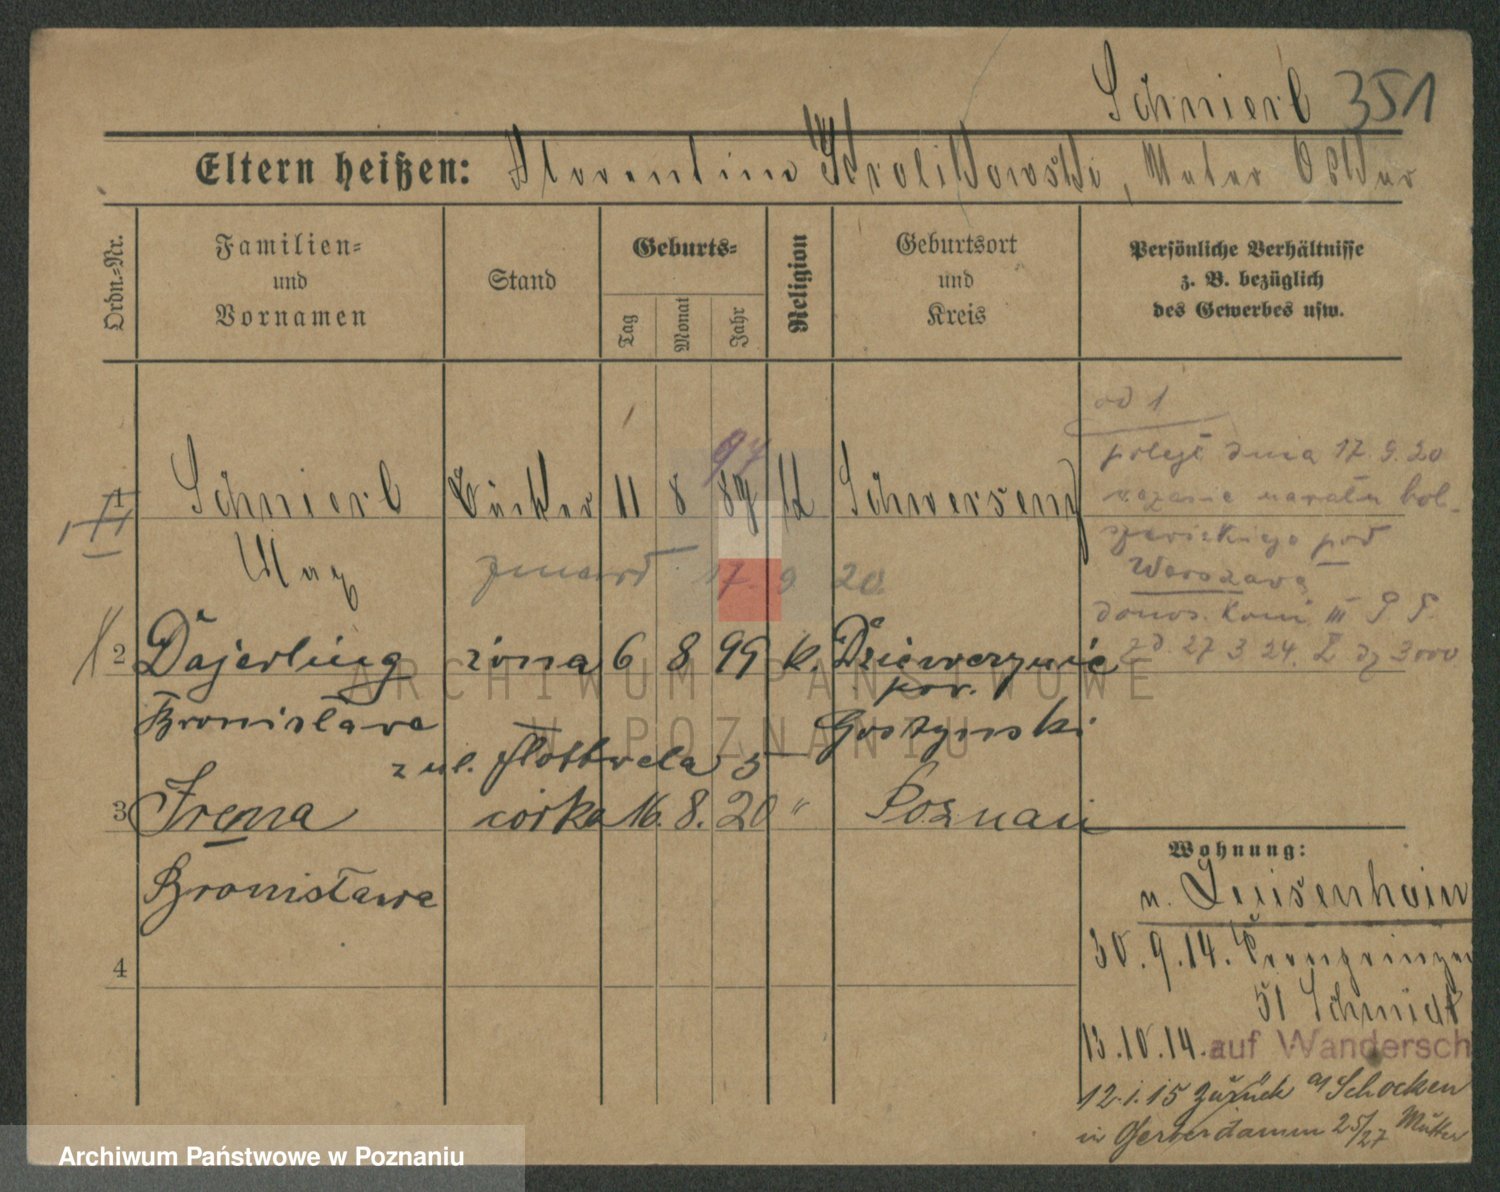 Schnierl 351
Eltern heißen: Florentine Krolikowski, Mutter
Ordn.-Nr.
Familien-
und
Vornamen
Stand
Geburts-
Tag
Monat
Jahr
Religion
Geburtsort
und
Kreis
Persönliche Verhältnisse
z. B. bezüglich
des Gewerbes usw.
od 1
poległ dnia 17.9.20
w czasie nawału bol-
szewickiego pod
Warszawą
donos. Kom III P.P.
zd. 27 3 24.
1 Schnierl Bäcker 11 8 97 K Schwersenz
Max zmarł 17. 9 20
2 Dajerling żona 6 8 99 k. Dziewczynić
Bronisława pow. Gostynski
z ul. Flottwela 5
3 Irena córka 16. 8. 20 " Poznań
Bronisława
4
Wohnung:
v. Luisenhain
30.9.14. Kronprinzen
51 Schmidt
13.10.14. auf Wandersch
12.1.15 zurück a/ Schocken
in Gerberdamm 25/27 Mutter
ARCHIWUM PAŃSTWOWE
W POZNANIU
Archiwum Państwowe w Poznaniu